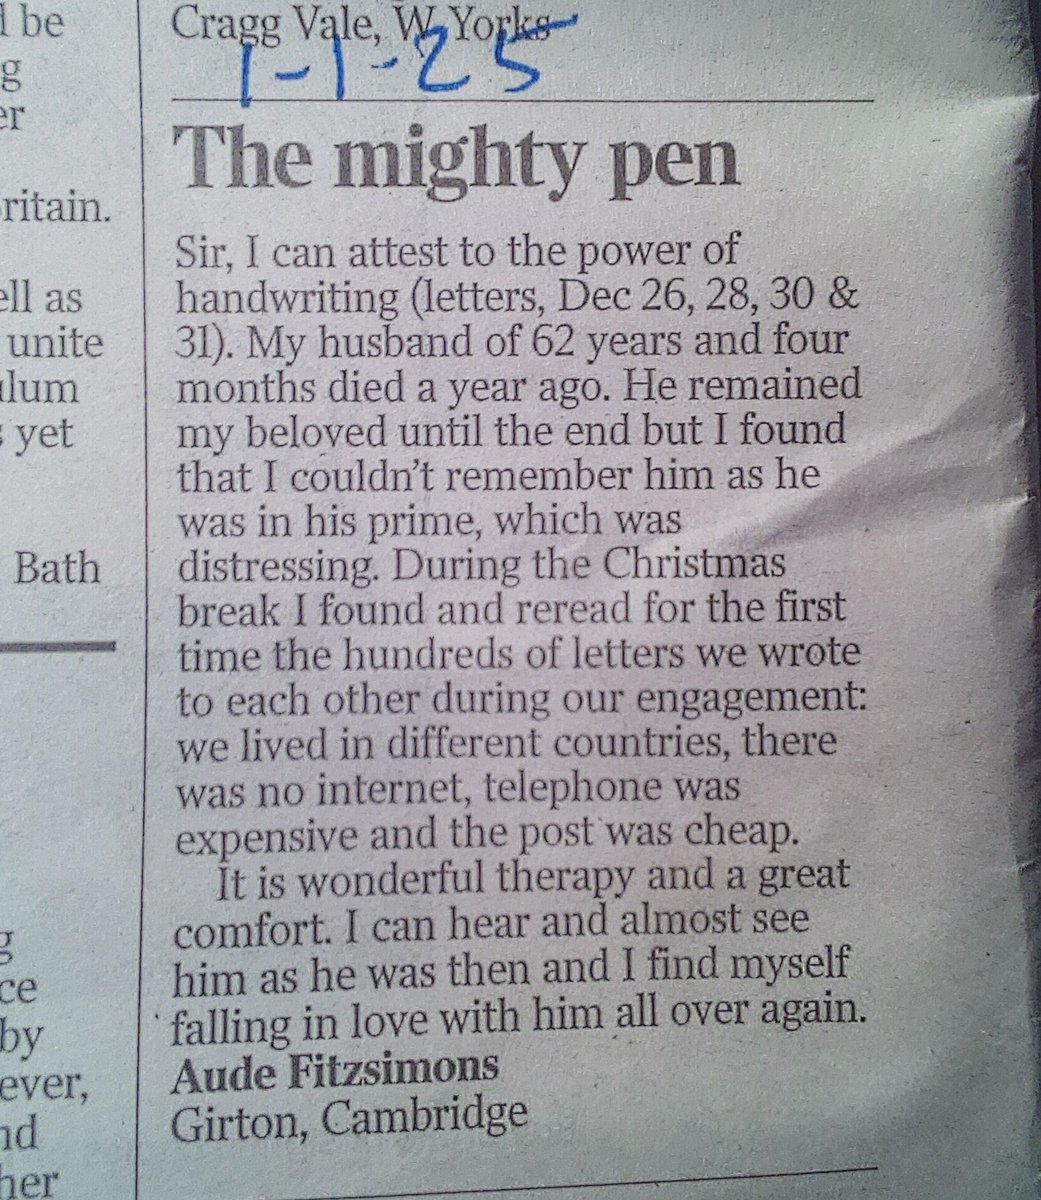 Cragg Vale, W Yorks
1-1-25
The mighty pen
Sir, I can attest to the power of
handwriting (letters, Dec 26, 28, 30 &
31). My husband of 62 years and four
months died a year ago. He remained
my beloved until the end but I found
that I couldn't remember him as he
was in his prime, which was
distressing. During the Christmas
break I found and reread for the first
time the hundreds of letters we wrote
to each other during our engagement:
we lived in different countries, there
was no internet, telephone was
expensive and the post was cheap.
It is wonderful therapy and a great
comfort. I can hear and almost see
him as he was then and I find myself
falling in love with him all over again.
Aude Fitzsimons
Girton, Cambridge
be
as
unite
yet
Bath
by